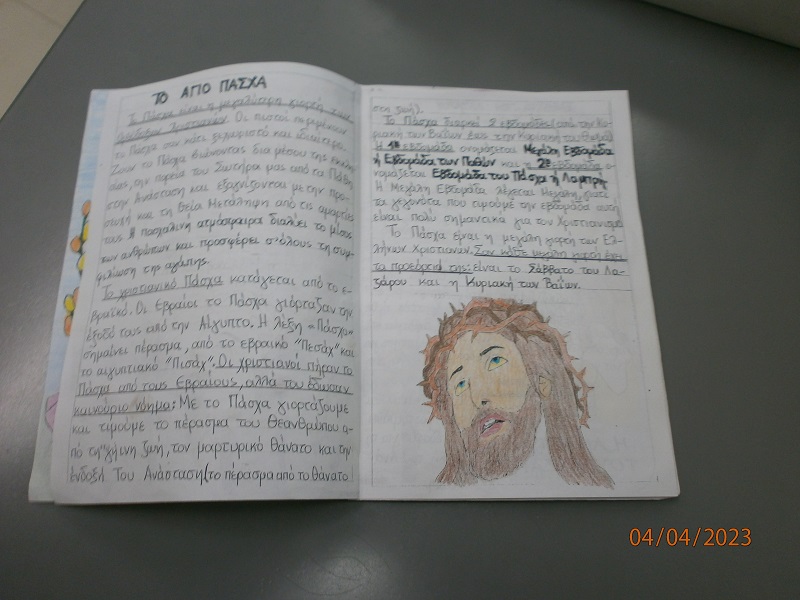 ΤΟ ΑΓΙΟ ΠΑΣΧΑ
Το Πάσχα είναι η μεγαλύτερη γιορτή των
Ορθόδοξων Χριστιανών. Οι πιστοί περιμένουν
το Πάσχα σαν κάτι ξεχωριστό και ιδιαίτερο.
Ζουν το Πάσχα βιώνοντας δια μέσου της εκκλη-
σίας, την πορεία του Σωτήρα μας από τα Πάθη
στην Ανάσταση και εξαγνίζονται με την προ-
σευχή και τη Θεία Μετάληψη από τις αμαρτίες
τους. Η πασχαλινή ατμόσφαιρα διαλύει το μίσος
των ανθρώπων και προσφέρει σ'όλους τη συμ-
φιλίωση της αγάπης.
Το χριστιανικό Πάσχα κατάγεται από το ε-
βραϊκό. Οι Εβραίοι το Πάσχα γιόρταζαν την
έξοδό τους από την Αίγυπτο. Η λέξη «Πάσχα»
σημαίνει πέρασμα, από το εβραϊκό "Πεσάχ" και
το αιγυπτιακό "Πισάχ". Οι χριστιανοί πήραν το
Πάσχα από τους Εβραίους, αλλά του έδωσαν
καινούριο νόημα: Με το Πάσχα γιορτάζουμε
και τιμούμε το πέρασμα του Θεανθρώπου α-
πό τη γήινη ζωή, τον μαρτυρικό θάνατο και την
ένδοξή Του Ανάσταση (το πέρασμα από το θάνατο
στη ζωή).
Το Πάσχα διαρκεί 2 εβδομάδες (από την Κυ-
ριακή των Βαΐων έως την Κυριακή του Θωμά)
Η 1η εβδομάδα ονομάζεται Μεγάλη Εβδομάδα
ή Εβδομάδα των Παθών και η 2η εβδομάδα ο-
νομάζεται Εβδομάδα του Πάσχα ή Λαμπρή.
Η Μεγάλη Εβδομάδα λέγεται Μεγάλη, γιατί
τα γεγονότα που τιμούμε την εβδομάδα αυτή
είναι πολύ σημαντικά για τον Χριστιανισμό
Το Πάσχα είναι η μεγάλη γιορτή των Ελ-
λήνων Χριστιανών. Σαν κάθε μεγάλη γιορτή έχει
τα προεόρτιά της: είναι το Σάββατο του Λα-
ζάρου και η Κυριακή των Βαΐων.
04/04/2023